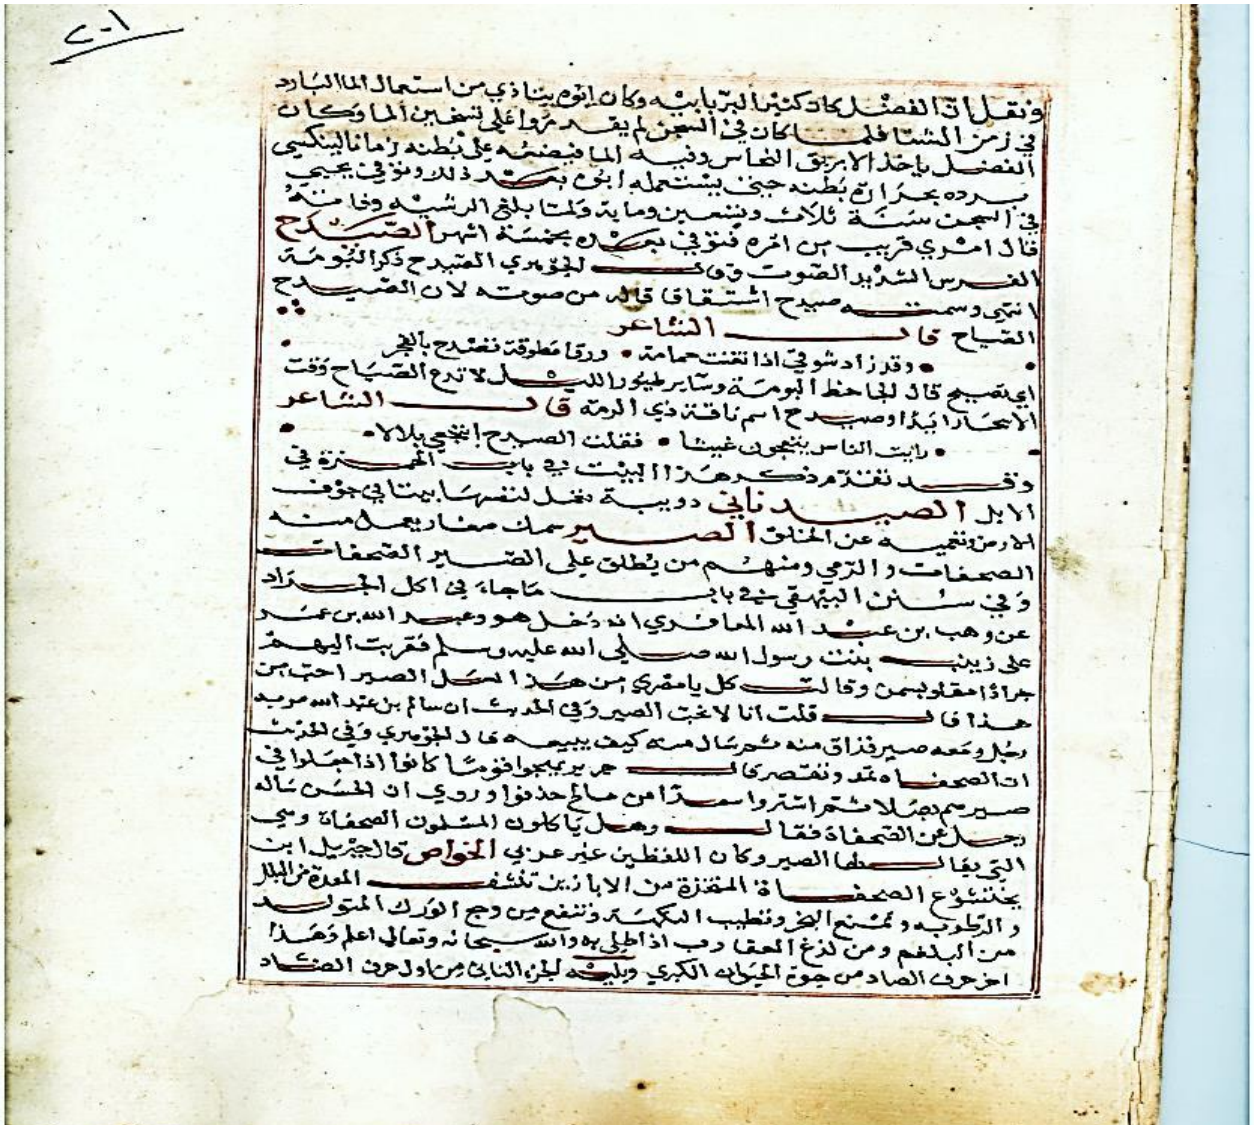 ٢٠١
ونقل ان الفضل كان كثير البر بابيه وكان ابوه يتاذي من استعمال الما البارد
في زمن الشتا فلما كان في السجن لم يقدروا علي تسخين الما وكان
الفضل ياخذ الابريق النحاس وفيه الما فيضعه علي بطنه زمانا لينكسي
برده بحرارة بطنه حتي يستعمله ابوه بعد ذلك وتوفي يحيي
في السجن سنة ثلاث وتسعين وماية ولما بلغ الرشيد وفاته
قال امري قريب من امره فتوفي بعده بخمسة اشهر الصيدح
الفرس الشديد الصوت وقال الجوهري الصيدح ذكر البومة
انتهي وسمته صيدح اشتقاقا قاله من صوته لان الصيدح
الصياح قال الشاعر
وقد زاد شوقي اذا تغنت حمامة • ورقا مطوقة تصدح بالفجر
اي تصيح قال الجاحظ البومة وساير طيور الليل لا تدع الصياح وقت
الاسحار ابدا وصيدح اسم ناقة ذي الرمة قال الشاعر
رايت الناس ينتجعون غيثا • فقلت الصيدح انتجعي بلالا
وقد تقدم ذكر هذا البيت في باب الهمزة في
الابل الصيدناني دويبة تعمل لنفسها بيتا في جوف
الارض وتعميه عن الخلق الصير سمك صغار يعمل منه
الصحفات والزمي ومنهم من يطلق علي الصير الصحفات
وفي سنن البيهقي في باب ما جاء في اكل الجراد
عن وهب بن عبد الله المعافري انه دخل هو وعبد الله بن عمر
علي زينب بنت رسول الله صلي الله عليه وسلم فقربت اليهم
جرادا مقلو بسمن وقالت كل يا مصري من هذا لعل الصير احب من
هذا قال قلت انا لا نحب الصير وفي الحديث ان سالم بن عبد الله مر به
رجل ومعه صير فذاق منه ثم سال منه كيف يبيعه قال الجوهري وفي الحديث
ان الصحفاه تمد وتقصر قال جرير يهجوا قوما كانوا اذا جعلوا في
صيرهم بصلا ثم اشتروا من مالح جدفوا وروي ان الحسن ساله
رجل عن الصحفاة فقال وهل ياكلون المسلمون الصحفاة وهي
التي يقال لها الصير وكان اللفظين غير عربي الخواص قال جبريل ابن
بختشوع الصحفاة المتخذة من الابازير تنشف المعدة من البلل
والرطوبه وتمنع البخر وتطيب النكهة وتنفع من وجع الورك المتولد
من البلغم ومن لدغ العقارب اذا طلي به والله سبحانه وتعالي اعلم وهذا
اخر حرف الصاد من حيوة الحيوان الكبري ويليه الجزء الثاني من اول حرف الضاد